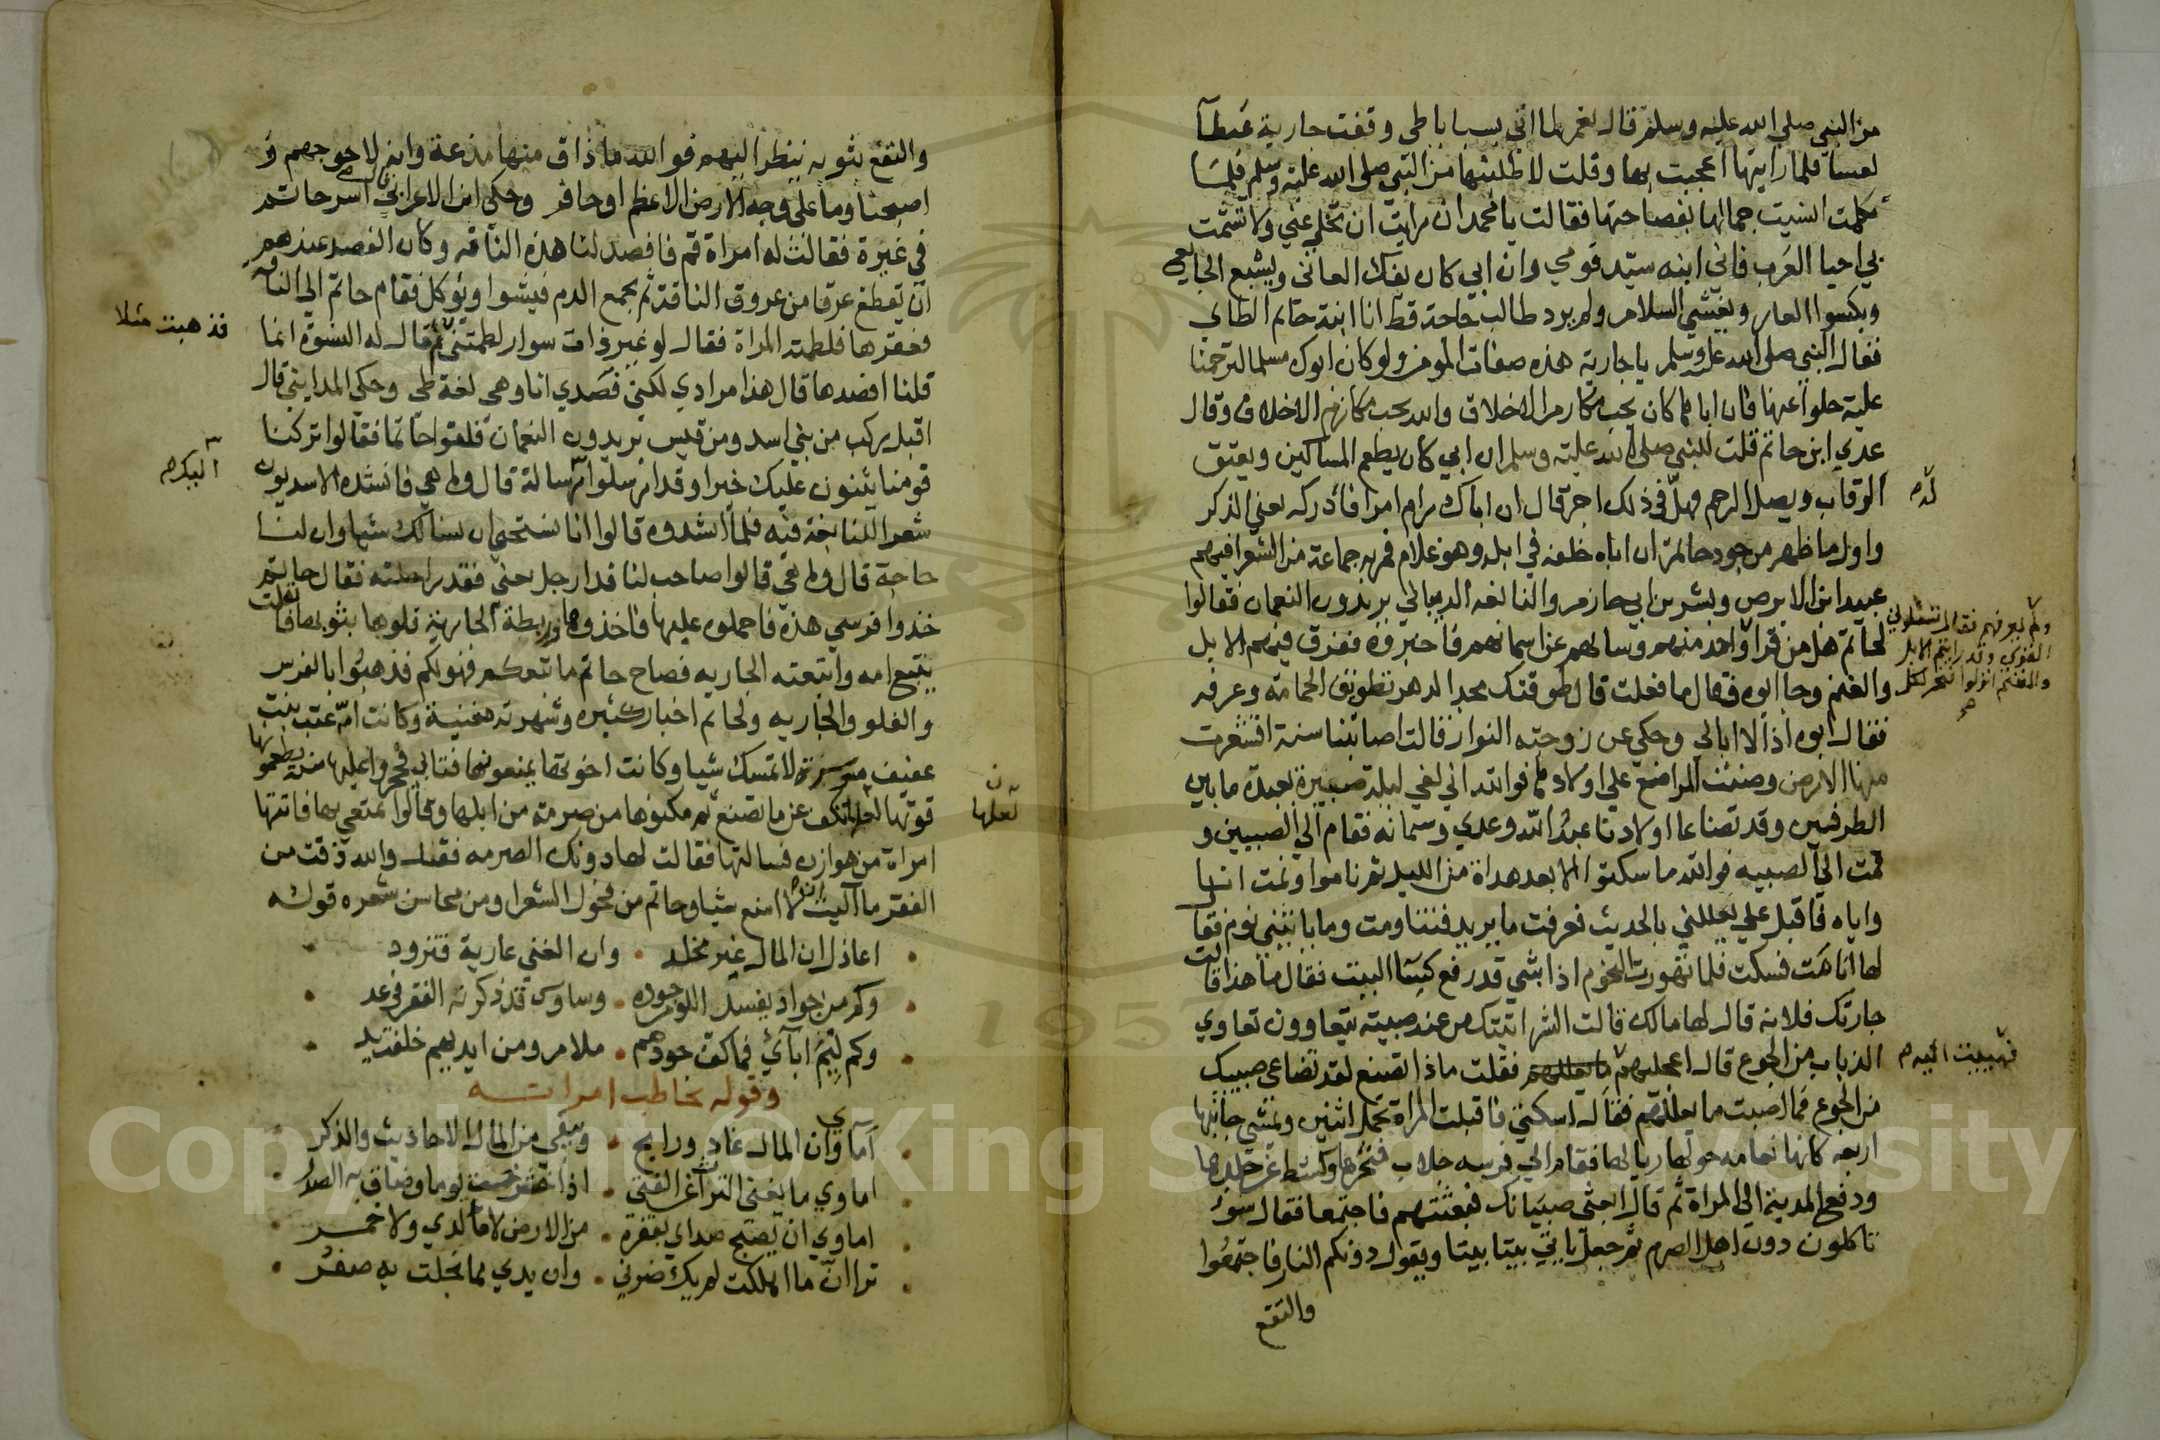 من النبي صلى الله عليه وسلم قال يغمرها اتي بسبايا طي وقفت جارية غيطآ
لعسا فلما رايتها اعجبت بها وقلت لاطلبنها من النبي صلى الله عليه وسلم فلما
تكلمت انسيت جمالها بفصاحتها فقالت يا محمد ان رايت ان تخلي عني ولا تشمت
بي احيا العرب فاني ابنه سيد قومي وان ابي كان يفك العاني ويشبع الجايع
ويكسوا العار ويفشي السلام ولم يرد طالب حاجة قط انا ابنة حاتم الطاي
فقال النبي صلى الله عليه وسلم يا جارية هذه صفات المومن ولو كان ابوك مسلما لترحمنا
عليه خلوا عنها فان اباها كان يحب مكارم الاخلاق والله يحب مكارم الاخلاق وقال
عدي ابن حاتم قلت للنبي صلى الله عليه وسلم ان ابي كان يطعم المساكين ويعتق
الرقاب ويصل الرحم فهل في ذلك اجر قال ان اباك رام امرا فادركه يعني الذكر
له
واول ما ظهر من جود حاتم ان اباه خلفه في ابله وهو غلام فمر به جماعة من الشعرا فيهم
عبيد ابن الابرص وبشر بن ابي حازم والنابغه الذبياني يريدون النعمان فقالوا
لحاتم هل من قرا واحد منهم وسالهم عن اسمايهم فاخبروه ففرق فيهم الابل
ولم يعرفهم فقال تسئلوني
القري وقد رايتم الابل
والغنم انزلوا فنحر لكل
والغنم وجا ابوه فقال ما فعلت قال طوقتك مجد الدهر تطويق الحمامة وعرفه
فقال ابوه اذا لا ابالي وحكي عن زوجته النوار قالت اصابتنا سنة اقشعرت
منها الارض وضنت المراضع علي اولادها فوالله اني لفي ليلة صنبيرة بعيدة ما بين
الطرفين وقد تضاغا اولادنا عبد الله وعدي وسفانه فقام الي الصبيين و
قمت الي الصبيه فوالله ما سكتوا الا بعد هداة من الليل ثم ناموا ونمت انا
واياه فاقبل علي يعللني بالحديث فعرفت ما يريد فتناومت وما ياتيني نوم فقال
لها انامت فسكت فلما تهورت النجوم اذا بشي قد رفع كسا البيت فقال ما هذا قالت
جارتك فلانه قال لها مالك قالت الشر اتيتك من عند صبيه يتعاوون تعاوي
الذياب من الجوع قال اعجليهم فقلت ماذا تصنع لقد تضاغي صبيتك
فهببت اليه
من الجوع فما اصبت ما يعللهم فقال اسكتي فاقبلت المراة تحمل اثنين وتمشي جانبها
اربعه كانها نعامه حولها ريالها فقام الي فرسه جلاب فنحرها وكشط عن جلدها
ودفع المدية الي المراة ثم قال ابعثي صبيانك فبعثتهم فاجتمعا فقال سوء
تاكلون دون اهل الصرم ثم جعل ياتي بيتا بيتا ويقول دونكم النار فاجتمعوا
والتفع
والتفع بثوبه ينظر اليهم فوالله ما ذاق منها مذعة وانه لاحوجهم و
اصبحنا وما علي وجه الارض الا عظم او حافر وحكي ابن الاعرابي قال اسر حاتم
في عنيزة فقالت له امراة قم فافصد لنا هذه الناقه وكان الفصد عندهم
ان يقطع عرقا من عروق الناقة ثم يجمع الدم فيشوا ويوكل فقام حاتم الي الناقه
فعقرها فلطمته المراة فقال لو غير ذات سوار لطمتني ثم قال له النسوة انما
فذهبت مثلا
قلنا افصدها قال هذا مرادي لكني فصدي انا وهي لغة طي وحكي المدايني قال
اقبل ركب من بني اسد ومن قيس يريدون النعمان فلقوا حاتما فقالوا تركنا
قومنا يثنون عليك خيرا وقد ارسلوا رسالة قال وما هي فانشده الاسديون
اليكم
شعرا للنابغة فيه فلما انشدوه قالوا انا نستحي ان نسالك شيا وان لنا
حاجة قال وما هي قالوا صاحب لنا قد ارجل يعني فقد راحلته فقال حاتم
خذوا فرسي هذه فاحملوه عليها فاخذوها وربطة الجارية فلوها بثوبها فافلت
يتبع امه واتبعته الجاريه فصاح حاتم ما تبعكم فهو لكم فذهبوا بالفرس
والفلو والجاريه ولحاتم اخبار كثيره وشهرته مغنية وكانت امه عتبه بنت
عفيف موسرة لا تمسك شيا وكانت اخوتها يمنعونها فتابي فحجروا عليها سنة يطعموها
قوتها لعلها تكف عن ما تصنع ثم مكنوها من صرمة من ابلها وقالوا تمتعي بها فاتتها
لعلها
امراة من هوازن فسالتها فقالت لها دونك الصرمه فقد والله ذقت من
الفقر ما آليت ان لا امنع شيا وحاتم من فحول الشعرا ومن محاسن شعره قوله
اعاذل ان المال غير مخلد • وان الغني عارية فتزود
وكم من جواد يفسد اللوم جوده • وساوس قد ذكرته الفقر في غد
وكم ليم ابآئي فما كف جودهم • ملام ومن ايديهم خلقت يد
وقوله يخاطب امراته
آماوي ان المال غاد ورايح • ويبقي من المال الاحاديث والذكر
اماوي ما يغني الثرآ عن الفتي • اذا حشرجت يوما وضاق به الصدر
اماوي ان يصبح صداي بقفرة • من الارض لا مآ لدي ولا خمر
ترا ان ما اهلكت لم يك ضرني • وان يدي مما بخلت به صفر
Copyright © King Saud University
1957